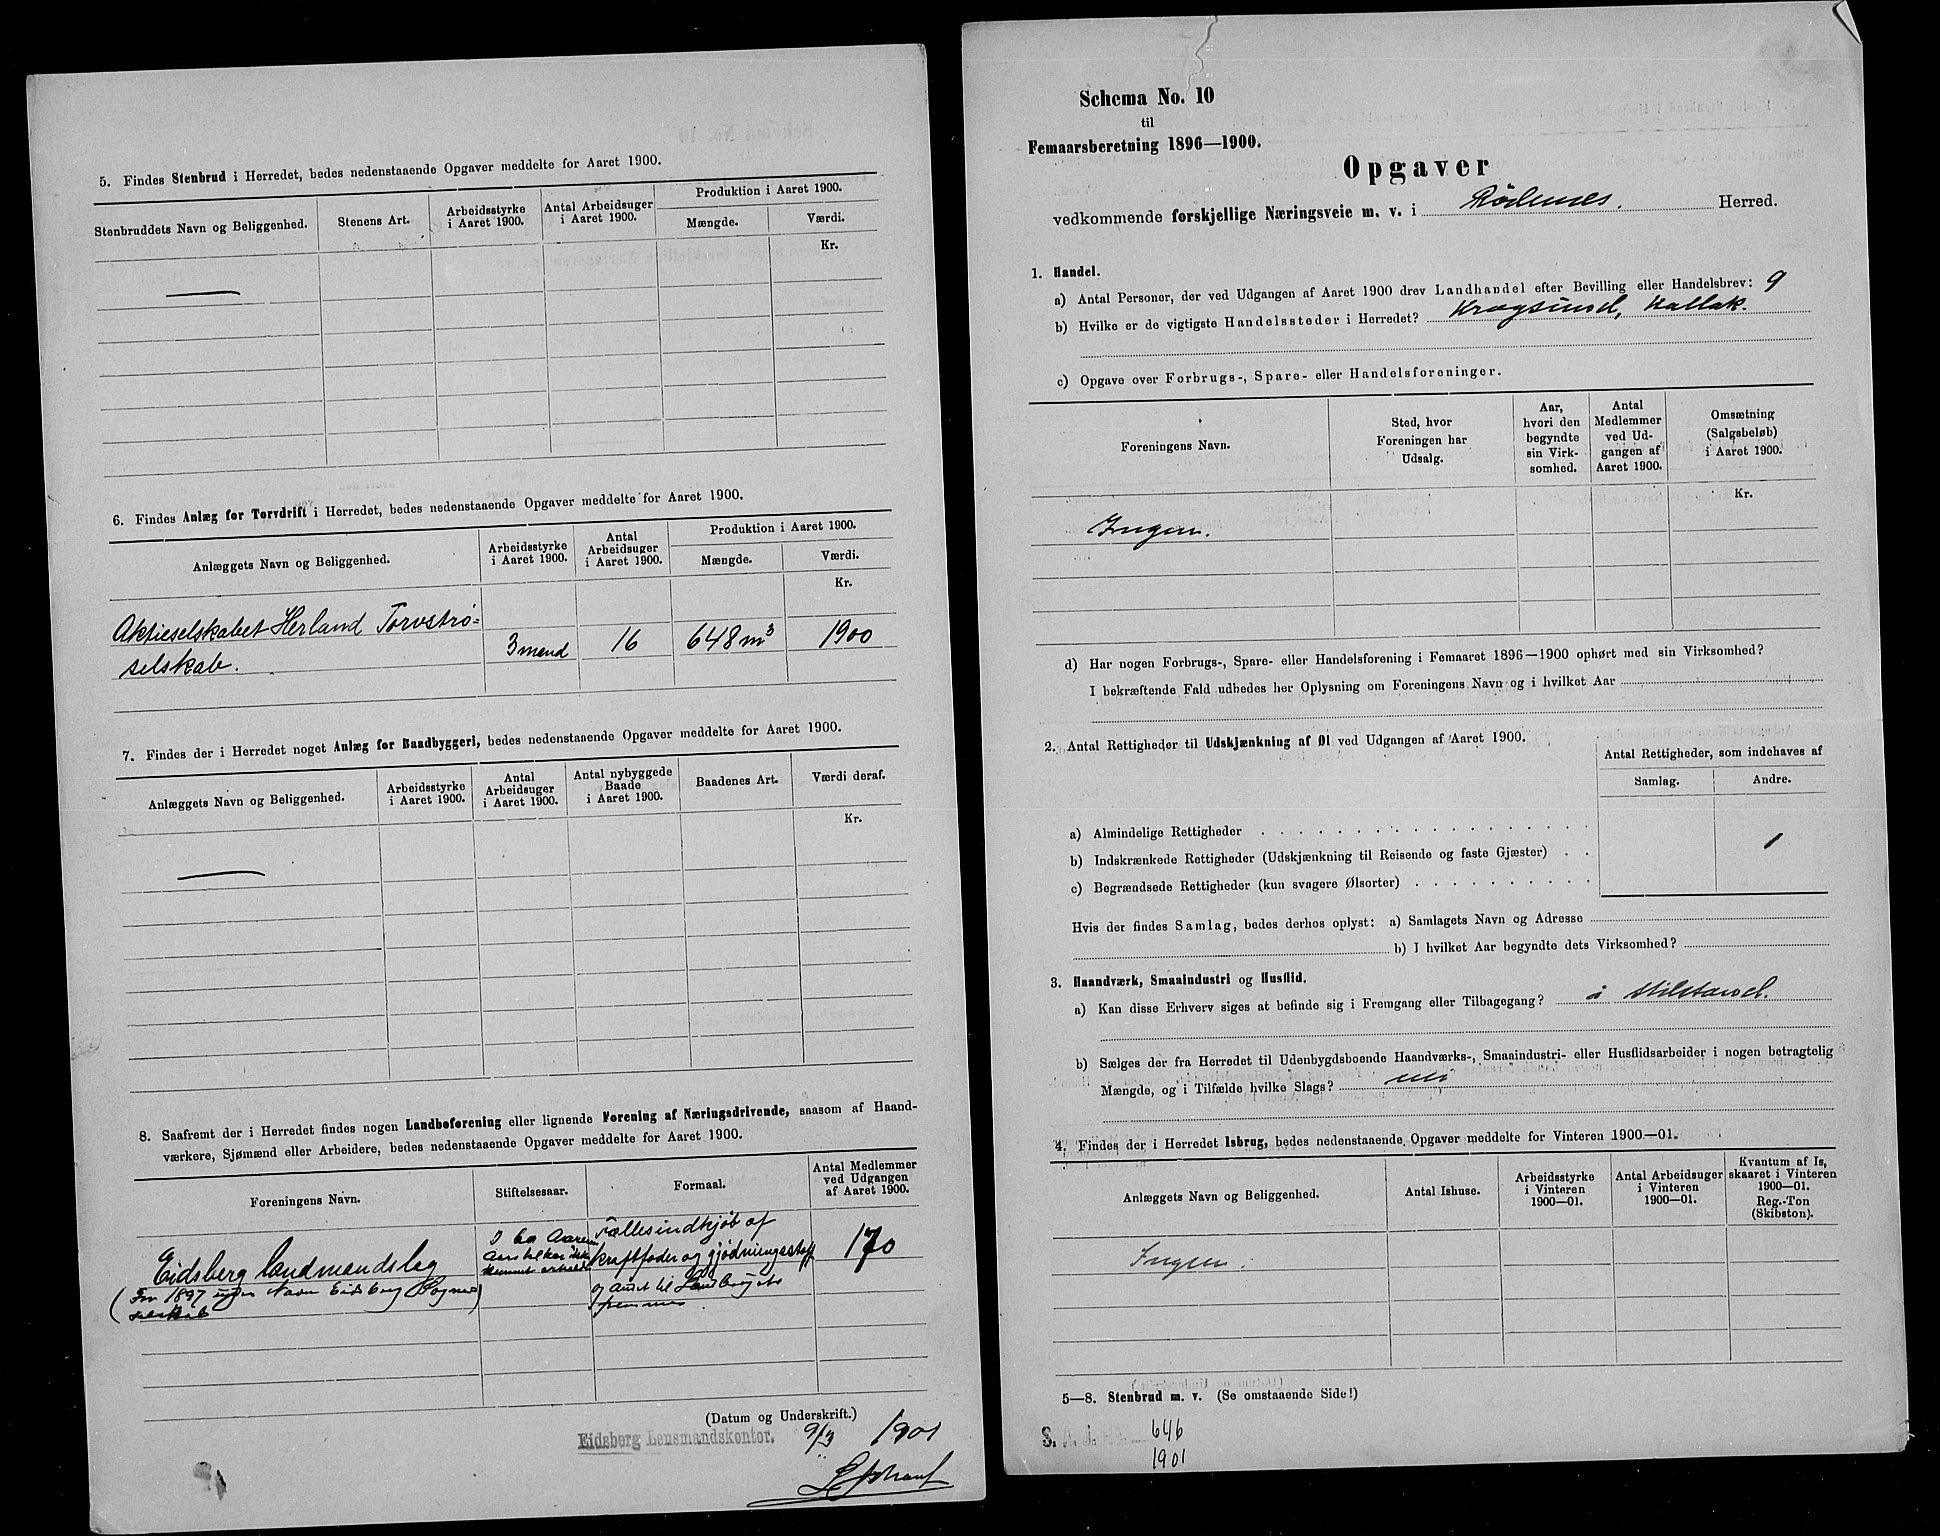 5. Findes Stenbrud i Herredet, bedes nedenstaaende Opgaver meddelte for Aaret 1900.
Stenbruddets Navn og Beliggenhed.
Stenens Art.
Arbeidsstyrke
i Aaret 1900.
Antal Arbeidsuger
i Aaret 1900.
Produktion i Aaret 1900.
Mængde.
Værdi.
Kr.
—
6. Findes Anlæg for Torvdrift i Herredet, bedes nedenstaaende Opgaver meddelte for Aaret 1900.
Anlæggets Navn og Beliggenhed.
Arbeidsstyrke
i Aaret 1900.
Antal
Arbeidsuger
i Aaret 1900.
Produktion i Aaret 1900.
Mængde.
Værdi.
Kr.
Aktieselskabet Herland Torvstrø-
selskab. 3 mand 16 648 m³ 1900
7. Findes der i Herredet noget Anlæg for Baadbyggeri, bedes nedenstaaende Opgaver meddelte for Aaret 1900.
Anlæggets Navn og Beliggenhed.
Arbeidsstyrke
i Aaret 1900.
Antal
Arbeidsuger
i Aaret 1900.
Antal nybyggede
Baade
i Aaret 1900.
Baadenes Art.
Værdi deraf.
Kr.
—
8. Saafremt der i Herredet findes nogen Landboforening eller lignende Forening af Næringsdrivende, saasom af Haand-
værkere, Sjømænd eller Arbeidere, bedes nedenstaaende Opgaver meddelte for Aaret 1900.
Foreningens Navn.
Stiftelsesaar.
Formaal.
Antal Medlemmer
ved Udgangen
af Aaret 1900.
Eidsberg Landmandslag
(Før 1897 under Navn Eidsberg Sogne-
selskab
Fællesindkjøb af
kraftfoder og gjødningsstoff
og andet til Landbrugets
fremme
170
(Datum og Underskrift.)
Eidsberg Lensmandskontor. 9/3 1901
Schema No. 10
til
Femaarsberetning 1896—1900.
Opgaver
vedkommende forskjellige Næringsveie m. v. i Rødenes. Herred.
1. Handel.
a) Antal Personer, der ved Udgangen af Aaret 1900 drev Landhandel efter Bevilling eller Handelsbrev: 9
b) Hvilke er de vigtigste Handelssteder i Herredet? Krogsund, Kallak.
c) Opgave over Forbrugs-, Spare- eller Handelsforeninger.
Foreningens Navn.
Sted, hvor
Foreningen har
Udsalg.
Aar,
hvori den
begyndte
sin Virk-
somhed.
Antal
Medlemmer
ved Ud-
gangen af
Aaret 1900.
Omsætning
(Salgsbeløb)
i Aaret 1900.
Kr.
Ingen.
d) Har nogen Forbrugs-, Spare- eller Handelsforening i Femaaret 1896—1900 ophørt med sin Virksomhed?
I bekræftende Fald udbedes her Oplysning om Foreningens Navn og i hvilket Aar
2. Antal Rettigheder til Udskjænkning af Øl ved Udgangen af Aaret 1900.
Antal Rettigheder, som indehaves af
Samlag.
Andre.
a) Almindelige Rettigheder
b) Indskrænkede Rettigheder (Udskjænkning til Reisende og faste Gjæster) 1
c) Begrændsede Rettigheder (kun svagere Ølsorter)
Hvis der findes Samlag, bedes derhos oplyst: a) Samlagets Navn og Adresse
b) I hvilket Aar begyndte dets Virksomhed?
3. Haandværk, Smaaindustri og Husflid.
a) Kan disse Erhverv siges at befinde sig i Fremgang eller Tilbagegang? i stilstand.
b) Sælges der fra Herredet til Udenbygdsboende Haandværks-, Smaaindustri- eller Husflidsarbeider i nogen betragtelig
Mængde, og i Tilfælde hvilke Slags? nei
4. Findes der i Herredet Isbrug, bedes nedenstaaende Opgaver meddelte for Vinteren 1900—01.
Anlæggets Navn og Beliggenhed.
Antal Ishuse.
Arbeidsstyrke
i Vinteren
1900—01.
Antal Arbeidsuger
i Vinteren
1900—01.
Kvantum af Is,
skaaret i Vinteren
1900—01.
Reg.-Ton
(Skibston).
Ingen.
5—8. Stenbrud m. v. (Se omstaaende Side!)
646
1901